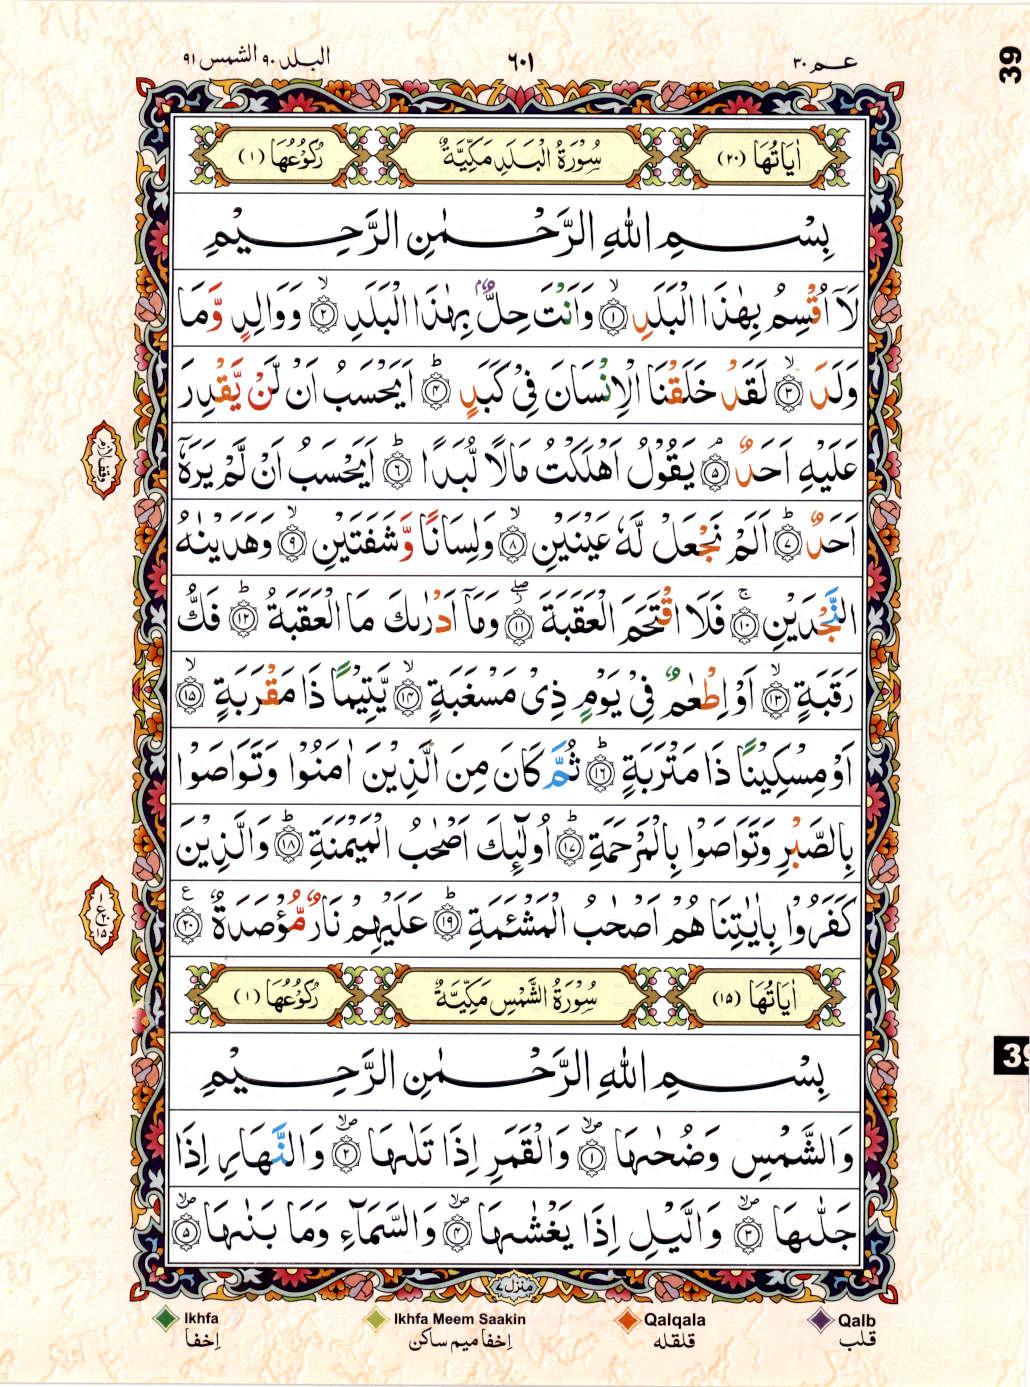 عم ٣٠
٦٠١
البلد ٩٠ الشمس ٩١
39
اٰيَاتُهَا (٢٠) سُوْرَةُ الْبَلَدِ مَكِّيَّةٌ رُكُوْعُهَا (١)
بِسْمِ اللهِ الرَّحْمٰنِ الرَّحِيْمِ
لَآ اُقْسِمُ بِهٰذَا الْبَلَدِ ۙ‏﴿١﴾ وَاَنْتَ حِلٌّۢ بِهٰذَا الْبَلَدِ ۙ‏﴿٢﴾ وَوَالِدٍ وَّمَا
وَلَدَ ۙ‏﴿٣﴾ لَقَدْ خَلَقْنَا الْاِنْسَانَ فِىْ كَبَدٍ ؕ‏﴿٤﴾ اَيَحْسَبُ اَنْ لَّنْ يَّقْدِرَ
عَلَيْهِ اَحَدٌ ۘ‏﴿٥﴾ يَقُوْلُ اَهْلَكْتُ مَالًا لُّبَدًا ؕ‏﴿٦﴾ اَيَحْسَبُ اَنْ لَّمْ يَرَهٗۤ
اَحَدٌ ؕ‏﴿٧﴾ اَلَمْ نَجْعَلْ لَّهٗ عَيْنَيْنِ ۙ‏﴿٨﴾ وَلِسَانًا وَّشَفَتَيْنِ ۙ‏﴿٩﴾ وَهَدَيْنٰهُ
النَّجْدَيْنِ ۚ‏﴿١٠﴾ فَلَا اقْتَحَمَ الْعَقَبَةَ ۖ‏﴿١١﴾ وَمَاۤ اَدْرٰىكَ مَا الْعَقَبَةُ ؕ‏﴿١٢﴾ فَكُّ
رَقَبَةٍ ۙ‏﴿١٣﴾ اَوْ اِطْعٰمٌ فِىْ يَوْمٍ ذِىْ مَسْغَبَةٍ ۙ‏﴿١٤﴾ يَّتِيْمًا ذَا مَقْرَبَةٍ ۙ‏﴿١٥﴾
اَوْ مِسْكِيْنًا ذَا مَتْرَبَةٍ ؕ‏﴿١٦﴾ ثُمَّ كَانَ مِنَ الَّذِيْنَ اٰمَنُوْا وَتَوَاصَوْا
بِالصَّبْرِ وَتَوَاصَوْا بِالْمَرْحَمَةِ ؕ‏﴿١٧﴾ اُولٰٓئِكَ اَصْحٰبُ الْمَيْمَنَةِ ؕ‏﴿١٨﴾ وَالَّذِيْنَ
كَفَرُوْا بِاٰيٰتِنَا هُمْ اَصْحٰبُ الْمَشْئَمَةِ ؕ‏﴿١٩﴾ عَلَيْهِمْ نَارٌ مُّؤْصَدَةٌ ‏﴿٢٠﴾ ع
اٰيَاتُهَا (١٥) سُوْرَةُ الشَّمْسِ مَكِّيَّةٌ رُكُوْعُهَا (١)
39
بِسْمِ اللهِ الرَّحْمٰنِ الرَّحِيْمِ
وَالشَّمْسِ وَضُحٰىهَا ‏﴿١﴾ وَالْقَمَرِ اِذَا تَلٰىهَا ‏﴿٢﴾ وَالنَّهَارِ اِذَا
جَلّٰىهَا ‏﴿٣﴾ وَالَّيْلِ اِذَا يَغْشٰىهَا ‏﴿٤﴾ وَالسَّمَآءِ وَمَا بَنٰىهَا ‏﴿٥﴾
منزل ٧
Ikhfa Ikhfa Meem Saakin Qalqala Qalb
اِخفا اِخفا میم ساکن قلقله قلب